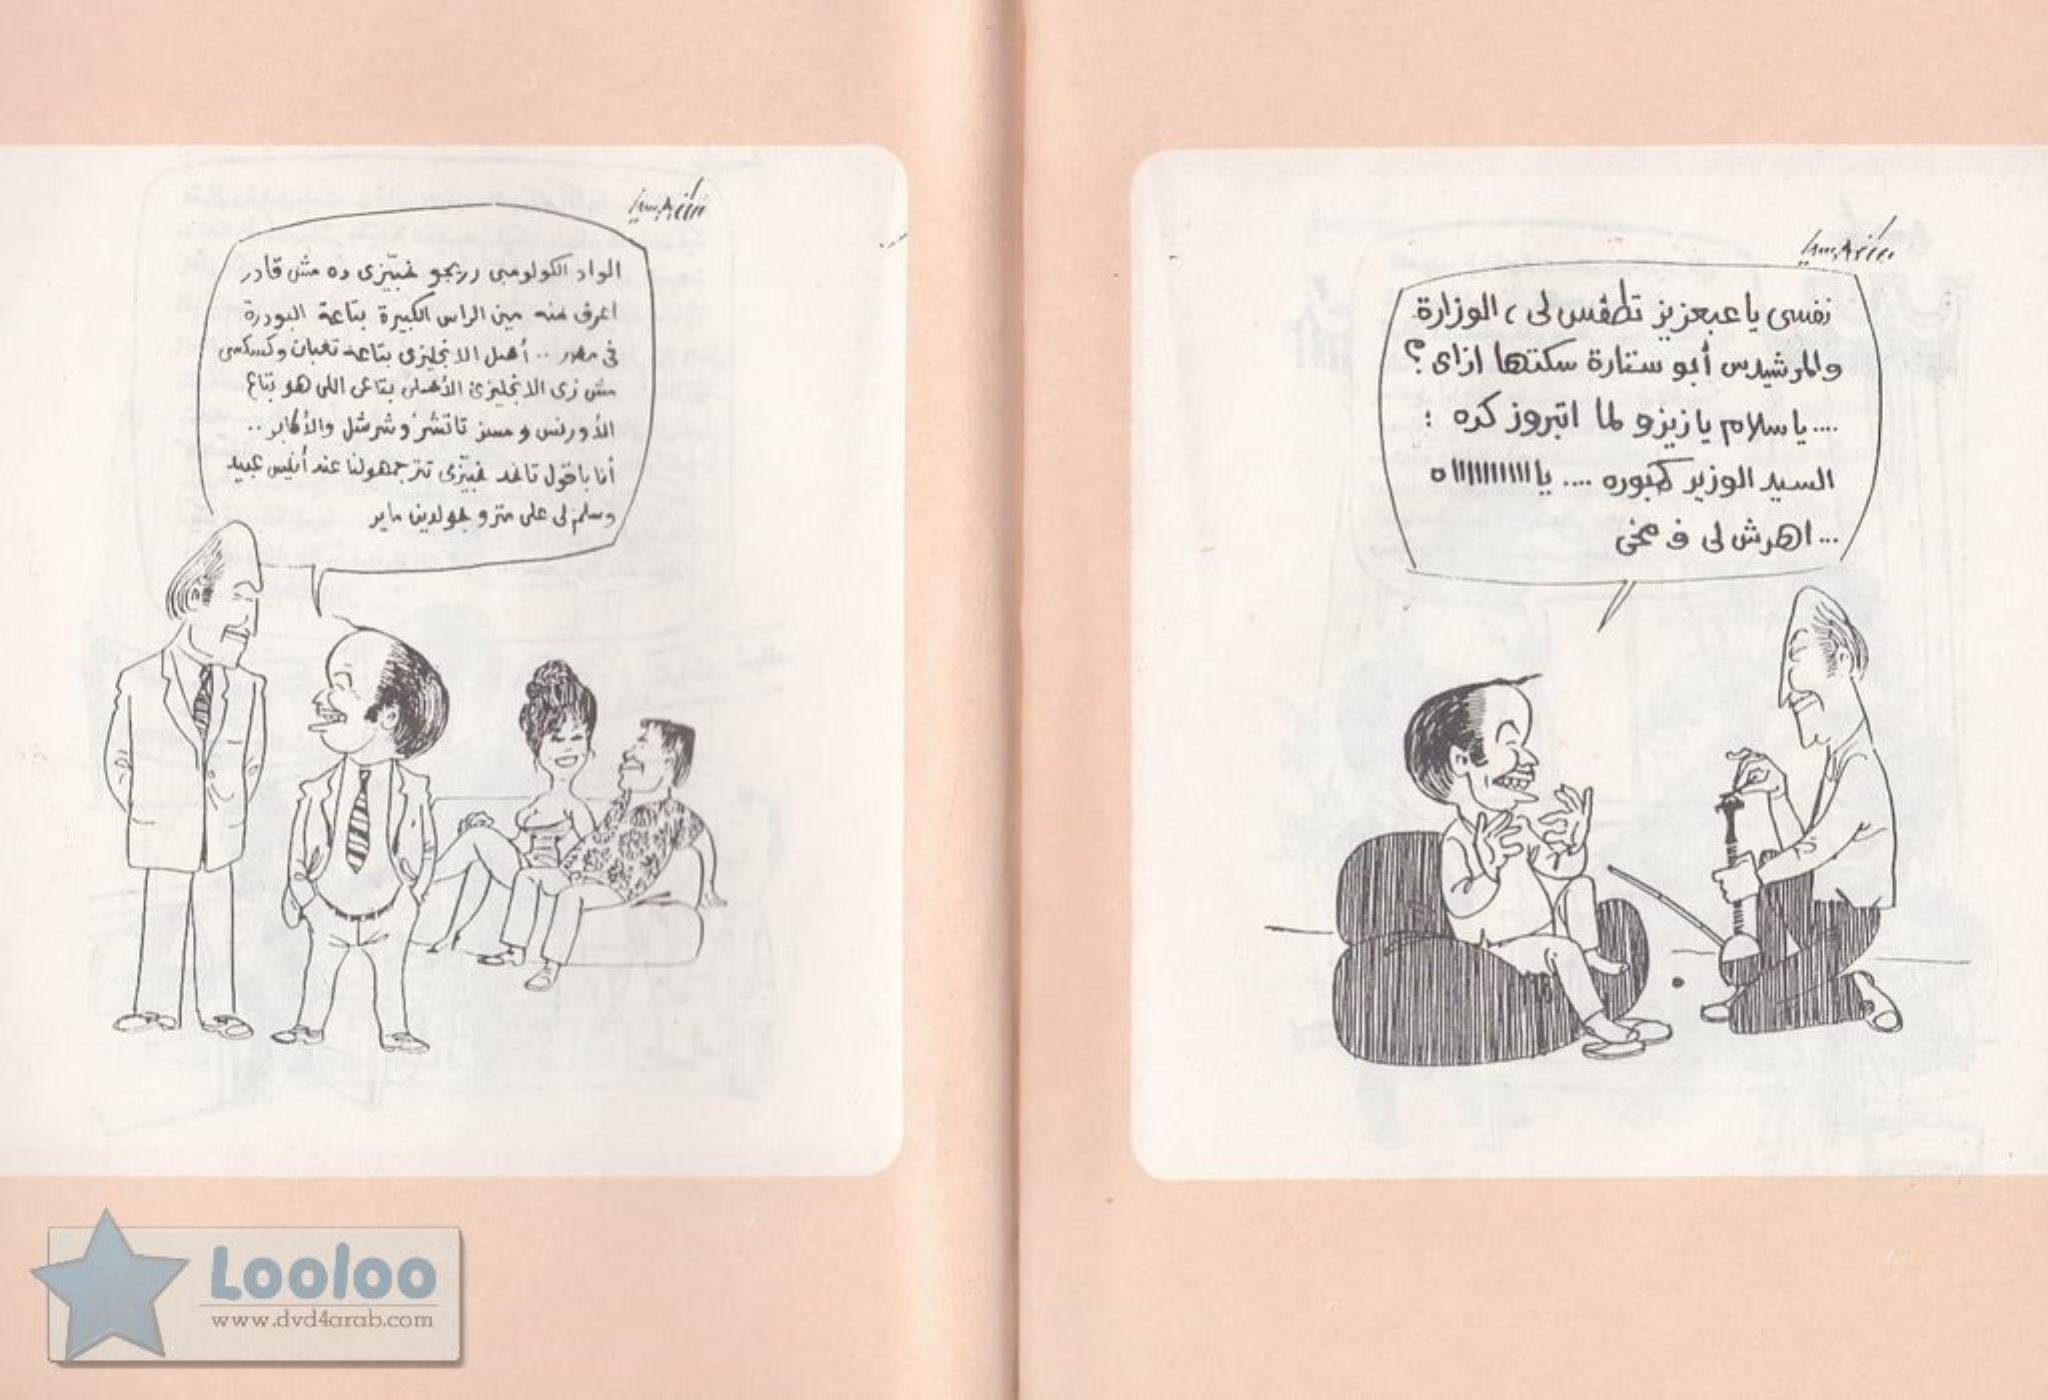 نفسى يا عبعزيز تطقس لى ، الوزارة
والمرشيدس أبو ستارة سكتها ازاى ؟
.... يا سلام يا زيزو لما اتبروز كده :
السيد الوزير كمبوره .... يا اااااااااااه
... اهرش لى ف مخى
الواد الكولومبى رريجو خبيّزى ده مش قادر
اعرف منه مين الراس الكبيرة بتاعة البودرة
فى مصر .. أصل الانجليزى بتاعه تعبان وكسكسى
مش زى الانجليزى الأصلى بتاعى اللى هو بتاع
الأورنس ومسز تاتشر وشرشل والأكابر ..
أنا باقول تاخد خبيّزى تترجمهولنا عند أنيس عبيد
وسلم لى على مترو جولدين ماير
Looloo
www.dvd4arab.com